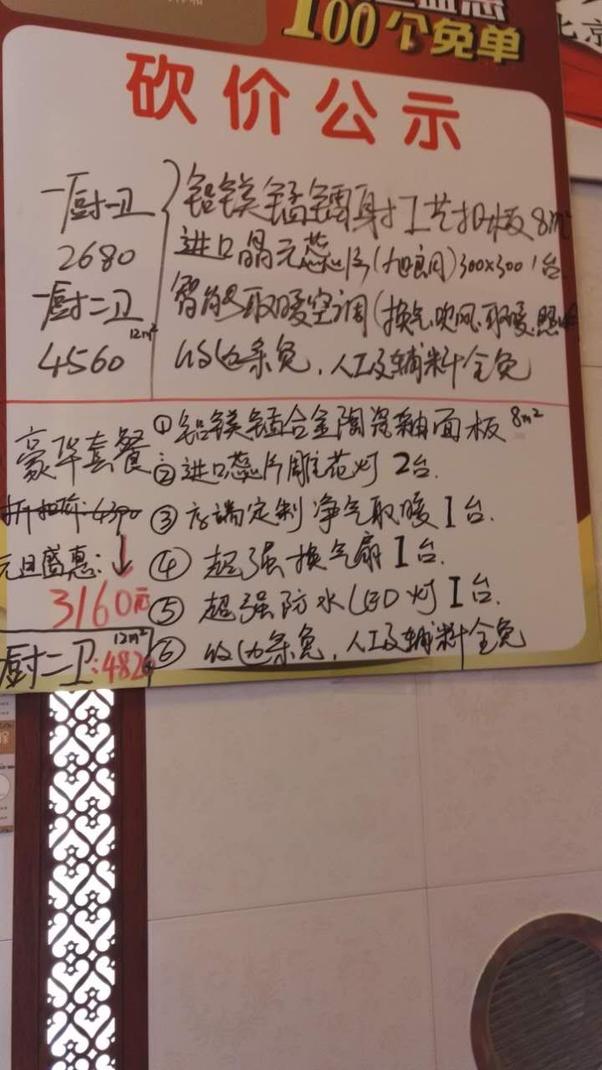 100个免单
北京
砍价公示
一厨一卫
2680
一厨二卫
12m²
4560
铝镁锰镭射工艺扣板 8m²
进口晶元芯片(旭朗)300x300 1台
智能取暖空调(换气.吹风.取暖.照
收边条免,人工及辅料全免
豪华套餐:
折扣价:4390
元旦盛惠:↓
3160元
厨二卫:
12m²
482
① 铝镁锰合金陶瓷釉面板 8m²
② 进口蕊片雕花灯 2台.
③ 高端定制净气取暖 1台.
④ 超强换气扇 1台.
⑤ 超强防水LED灯 1台.
⑥ 收边条免,人工及辅料全免